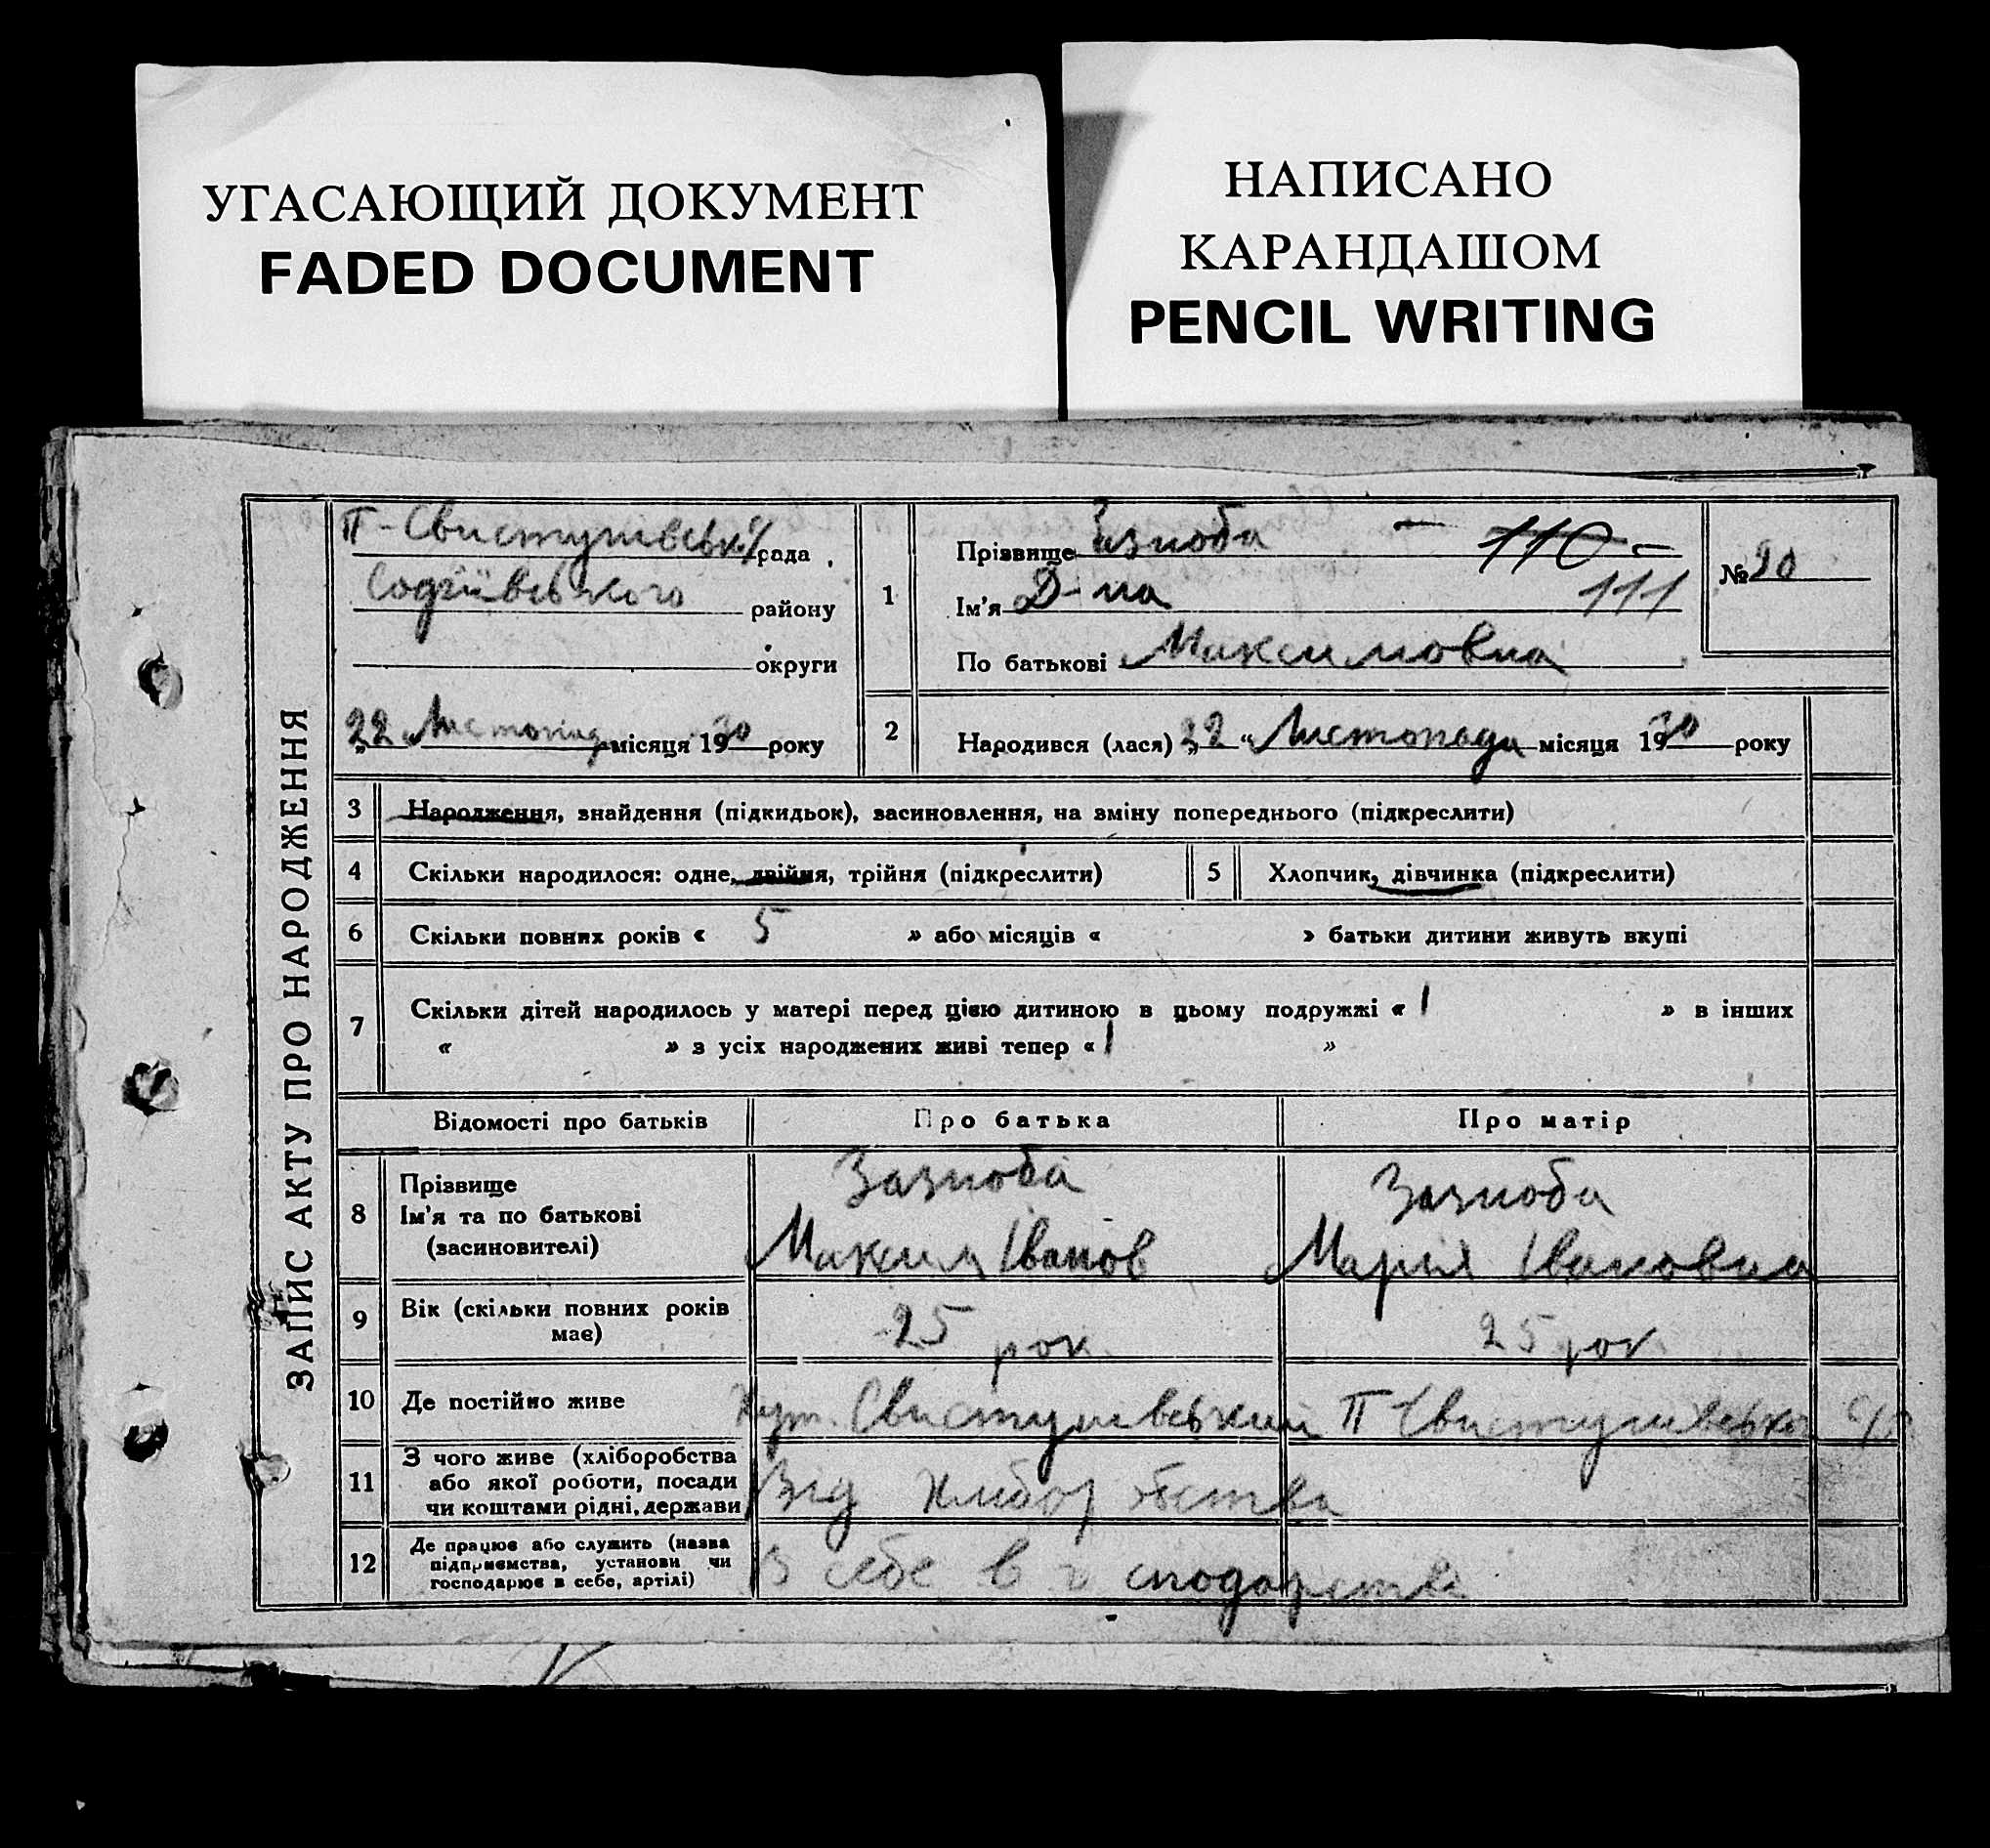 УГАСАЮЩИЙ ДОКУМЕНТ
FADED DOCUMENT
НАПИСАНО
КАРАНДАШОМ
PENCIL WRITING
ЗАПИС АКТУ ПРО НАРОДЖЕННЯ
П-Свистунівськ. с/рада
району
округи
22 Листопад місяця 1930 року
1
Прізвище Зазноба - 110 -
Ім'я Д-на 111
По батькові Максимовна
№ 20
2
Народився (лася) „22“ Листопада місяця 1930 року
3 Народження, знайдення (підкидьок), засиновлення, на зміну попереднього (підкреслити)
4 Скільки народилося: одне, двійня, трійня (підкреслити)
5 Хлопчик, дівчинка (підкреслити)
6 Скільки повних років « 5 » або місяців « » батьки дитини живуть вкупі
7 Скільки дітей народилось у матері перед цією дитиною в цьому подружжі « 1 » в інших
« » з усіх народжених живі тепер « 1 »
Відомості про батьків Про батька Про матір
8 Прізвище
Ім'я та по батькові
(засиновителі)
Зазноба
Максим Іванов
Зазноба
Марія Івановна
9 Вік (скільки повних років
має)
25 рок
25 рок
10 Де постійно живе Хут. Свистунівський П-Свистунівської с/р
11 З чого живе (хліборобства
або якої роботи, посади
чи коштами рідні, держави
Від хліборобства
12 Де працює або служить (назва
підприємства, установи чи
господарює в себе, артілі)
В себе в господарстві